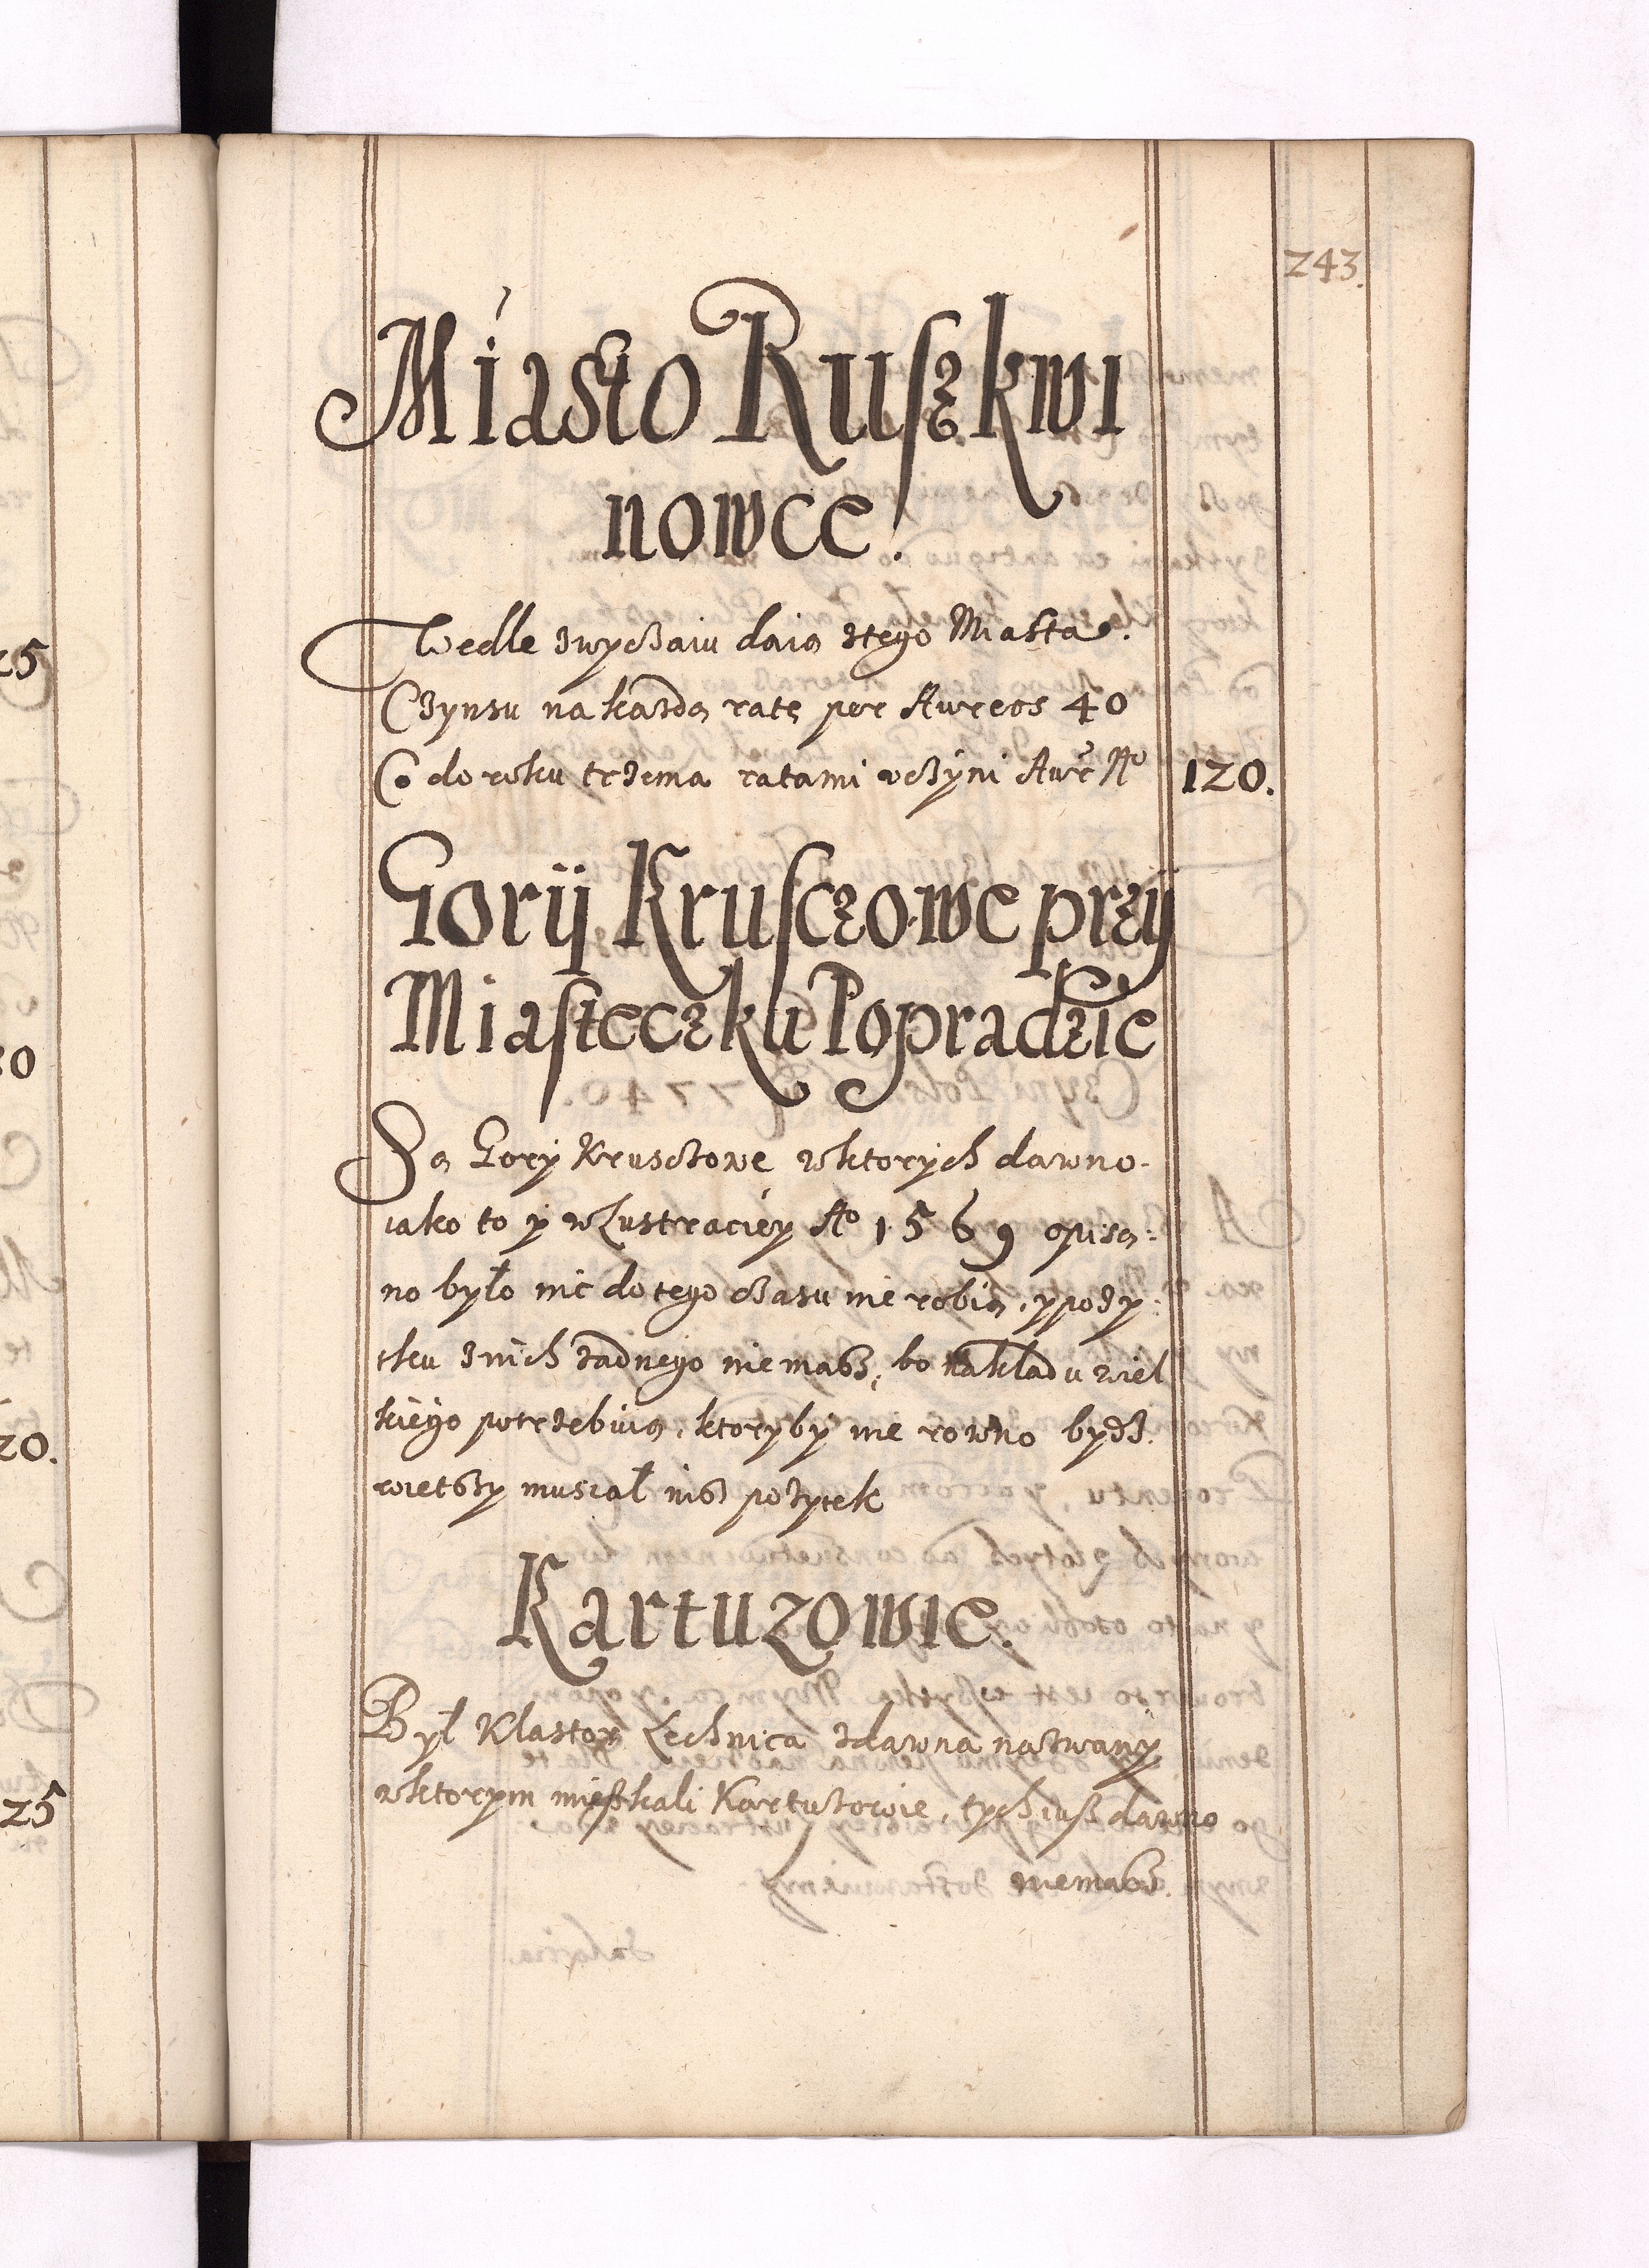 243.
Miasto Ruszkwi
nowce.
Wedle zwyczaiu daią ztego Miasta.
Czynsu na kazdą ratę per Aureos 40
Co do roku trzema ratami vczyni Aur̃ No 120.
Gorÿ Krusczowe przÿ
Miasteczku Popradzie
Są Gory Krusczowe wktorych dawno
iako to y wLustraciey Ao 1569 opisa:
no było nic do tego czasu nie robią, y pozy:
tku znich zadnego niemasz, bo nakładu wiel
kiego potrzebuią, ktoryby nie rowno bydz
wietszy musiał nisz pozytek
Kartuzowie.
Był Klastor Lechnica zdawna nazwany
wktorym mieszkali Kartuzowie, tych iusz dawno
niemasz.
25
20.
25